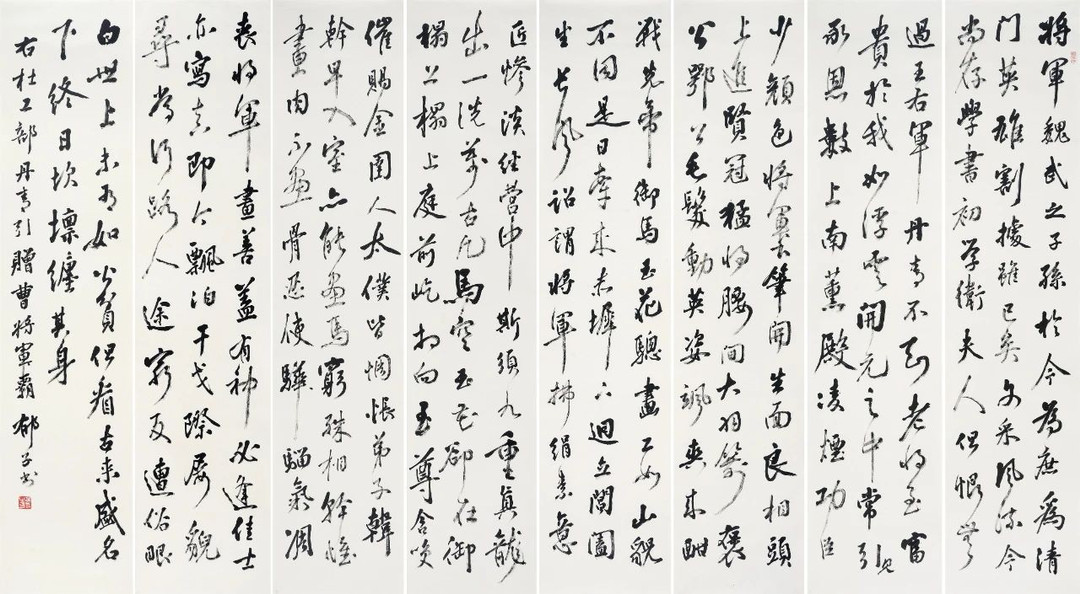 將軍魏武之子孫於今為庶為清
門英雄割據雖已矣文采風流今
尚存學書初學衛夫人但恨無
過王右軍丹青不知老將至富
貴於我如浮雲開元之中常引見
承恩數上南薰殿凌煙功臣
少顏色將軍下筆開生面良相頭
上進賢冠猛將腰間大羽箭褒
公鄂公毛髮動英姿颯爽來酣
戰先帝御馬玉花驄畫工如山貌
不同是日牽來赤墀下迥立閶闔
生長風詔謂將軍拂絹素意
匠慘淡經營中斯須九重真龍
出一洗萬古凡馬空玉花卻在御
榻上榻上庭前屹相向至尊含笑
催賜金圉人太僕皆惆悵弟子韓
幹早入室亦能畫馬窮殊相幹惟
畫肉不畫骨忍使驊騮氣凋
喪將軍畫善蓋有神必逢佳士
亦寫真即今飄泊干戈際屢貌
尋常行路人途窮反遭俗眼
白世上未有如公貧但看古來盛名
下終日坎壈纏其身
右杜工部丹青引贈曹將軍霸